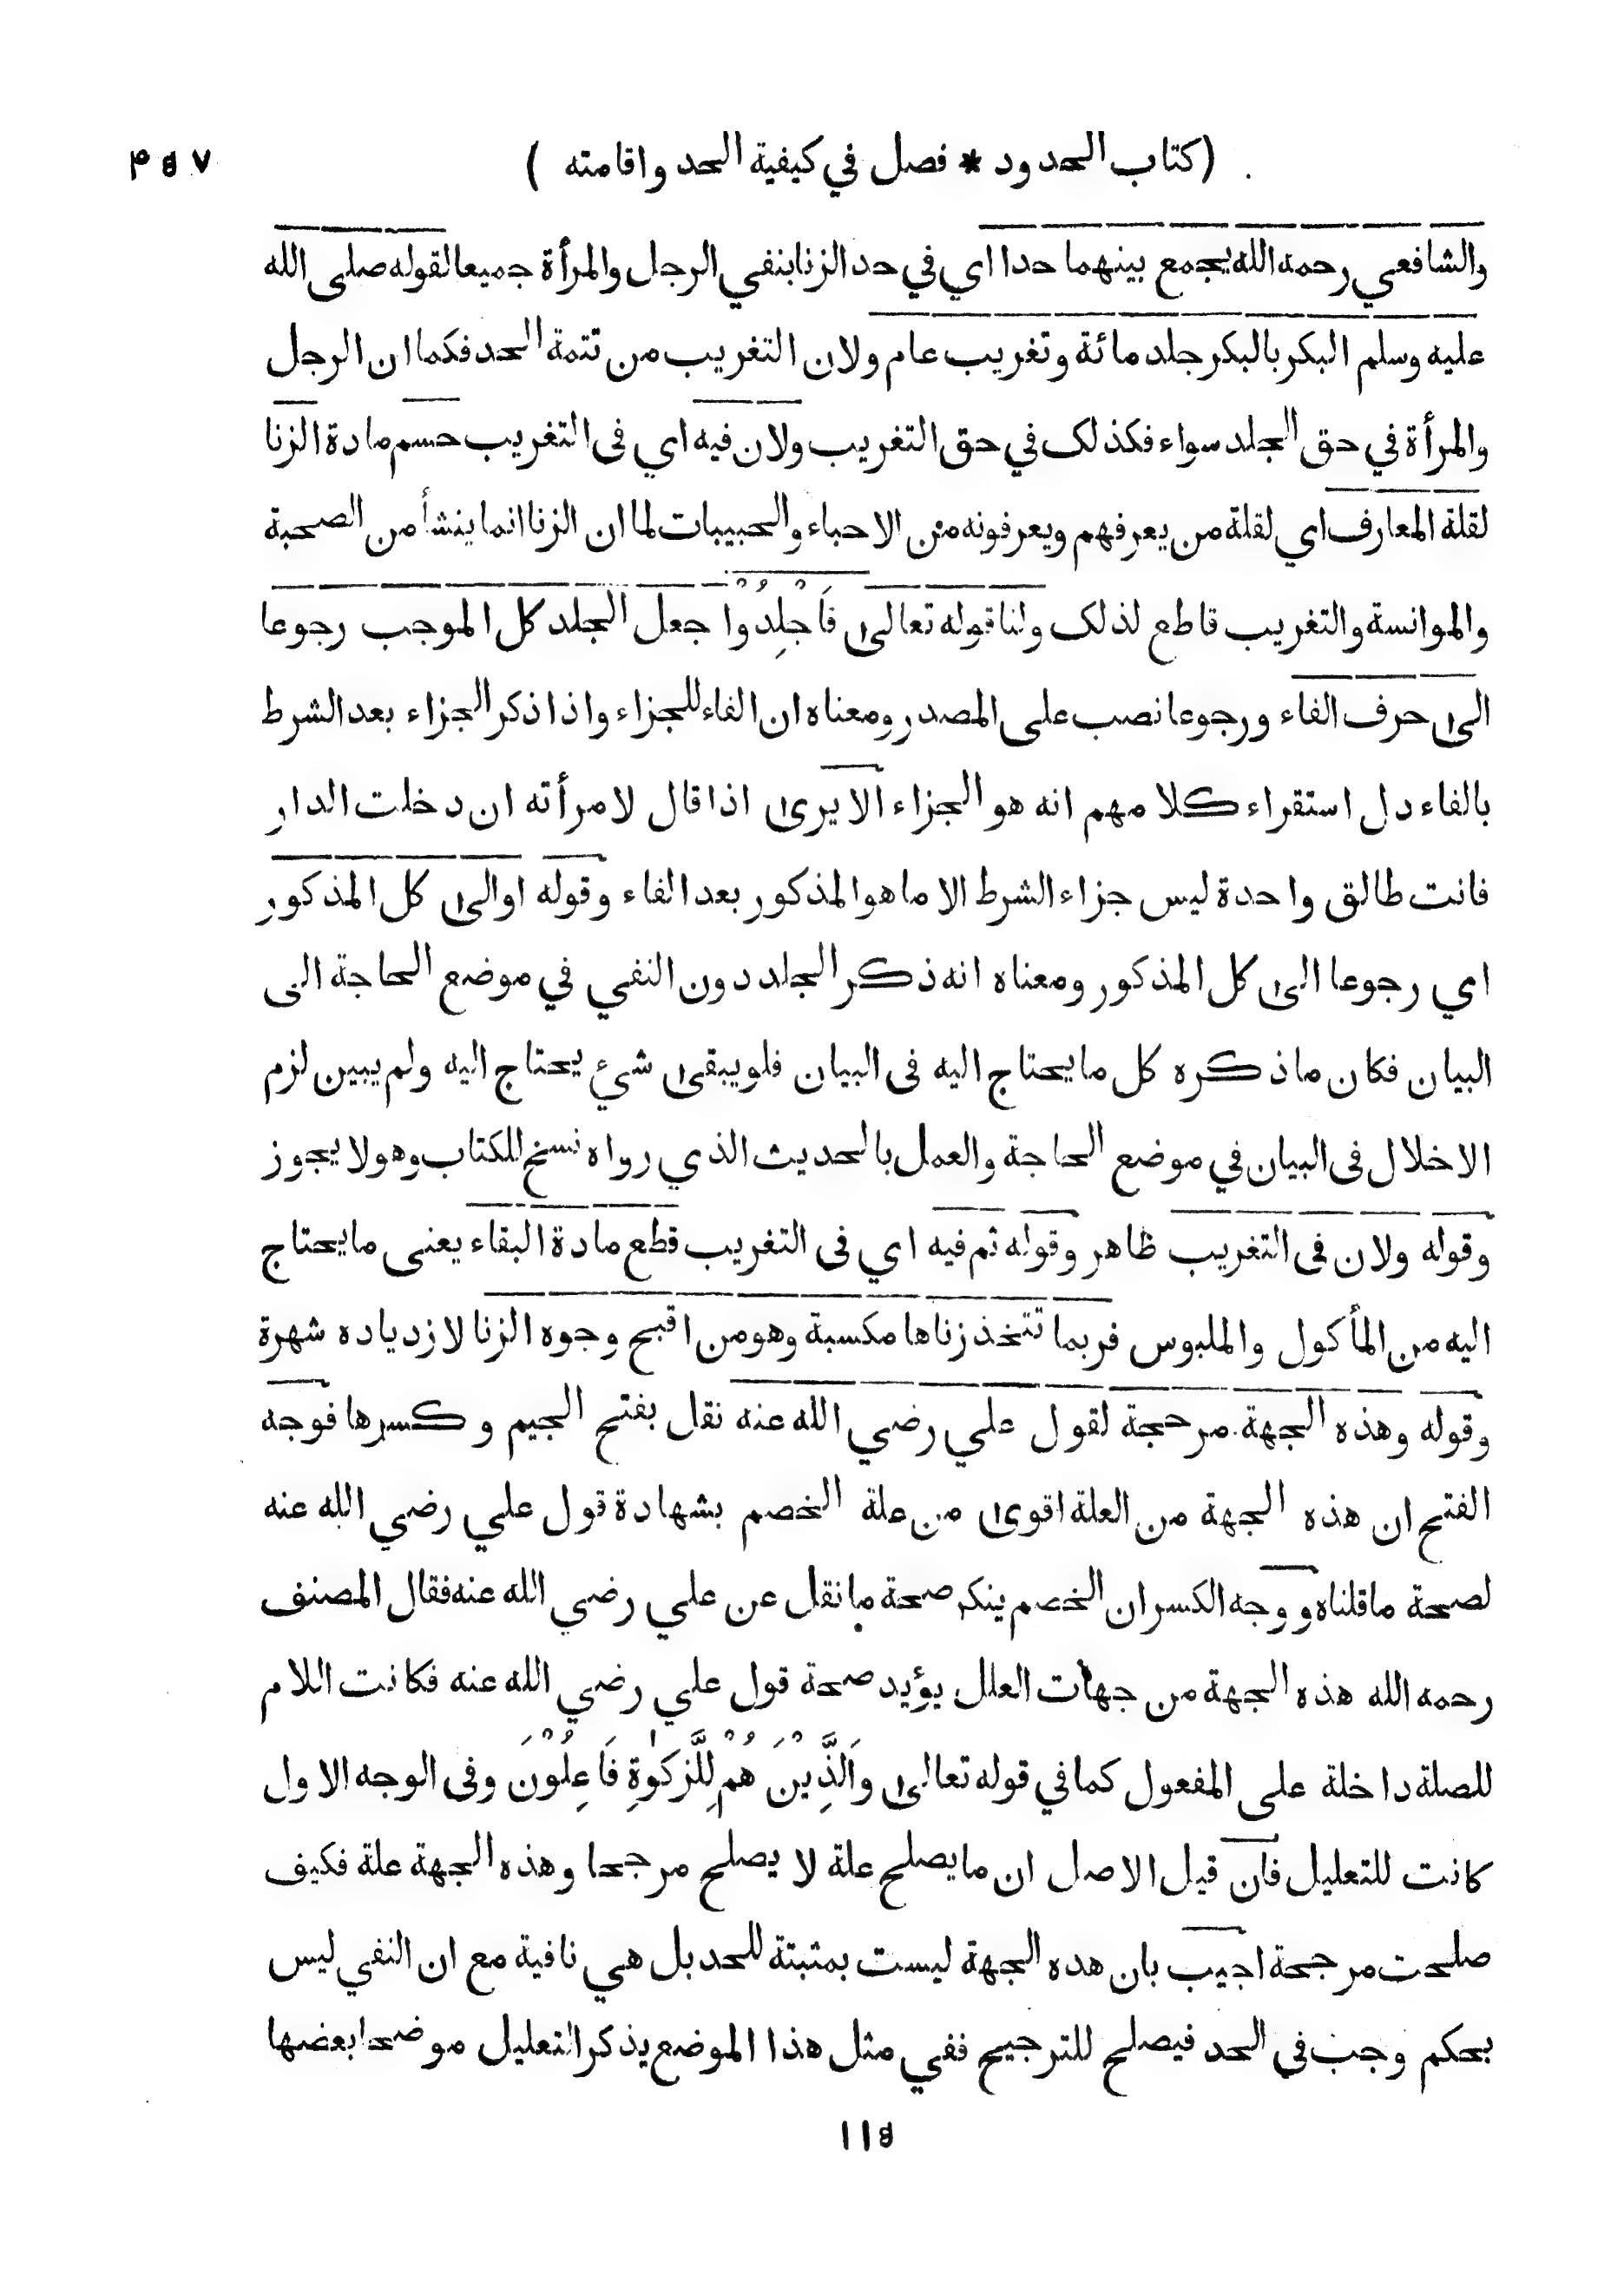 (كتاب الحدود * فصل في كيفية الحد واقامته) ۴۵۷
والشافعي رحمه الله يجمع بينهما حدا اي في حد الزنا بنفي الرجل والمرأة جميعا لقوله صلى الله
عليه وسلم البكر بالبكر جلد مائة وتغريب عام ولان التغريب من تتمة الحد فكما ان الرجل
والمرأة في حق الجلد سواء فكذلك في حق التغريب ولان فيه اي فى التغريب حسم مادة الزنا
لقلة المعارف اي لقلة من يعرفهم ويعرفونه من الاحباء والحبيبات لما ان الزنا انما ينشأ من الصحبة
والموانسة والتغريب قاطع لذلك ولنا قوله تعالى فَاجْلِدُوْا جعل الجلد كل الموجب رجوعا
الى حرف الفاء ورجوعا نصب على المصدر ومعناه ان الفاء للجزاء واذا ذكر الجزاء بعد الشرط
بالفاء دل استقراء كلا مهم انه هو الجزاء الا يرى اذا قال لا مرأته ان دخلت الدار
فانت طالق واحدة ليس جزاء الشرط الا ما هو المذكور بعد الفاء وقوله اوالى كل المذكور
اي رجوعا الى كل المذكور ومعناه انه ذكر الجلد دون النفي في موضع الحاجة الى
البيان فكان ما ذكره كل ما يحتاج اليه فى البيان فلو يبقى شيء يحتاج اليه ولم يبين لزم
الاخلال فى البيان في موضع الحاجة والعمل بالحديث الذي رواه نسخ للكتاب وهو لا يجوز
وقوله ولان فى التغريب ظاهر وقوله ثم فيه اي فى التغريب قطع مادة البقاء يعنى ما يحتاج
اليه من المأكول والملبوس فربما تتخذ زناها مكسبة وهو من اقبح وجوه الزنا لازدياده شهرة
وقوله وهذه الجهة مرجحة لقول علي رضي الله عنه نقل بفتح الجيم وكسرها فوجه
الفتح ان هذه الجهة من العلة اقوى من علة الخصم بشهادة قول علي رضي الله عنه
لصحة ما قلناه ووجه الكسر ان الخصم ينكر صحة ما نقل عن علي رضي الله عنه فقال المصنف
رحمه الله هذه الجهة من جهات العلل يؤيد صحة قول علي رضي الله عنه فكانت اللام
للصلة داخلة على المفعول كما في قوله تعالى وَالَّذِيْنَ هُمْ لِلَّزكٰوةِ فَاعِلُوْنَ وفى الوجه الاول
كانت للتعليل فان قيل الاصل ان ما يصلح علة لا يصلح مرجحا وهذه الجهة علة فكيف
صلحت مرجحة اجيب بان هده الجهة ليست بمثبتة للحد بل هي نافية مع ان النفي ليس
بحكم وجب فى الحد فيصلح للترجيح ففي مثل هذا الموضع يذكر التعليل موضحا بعضها
۱۱۵